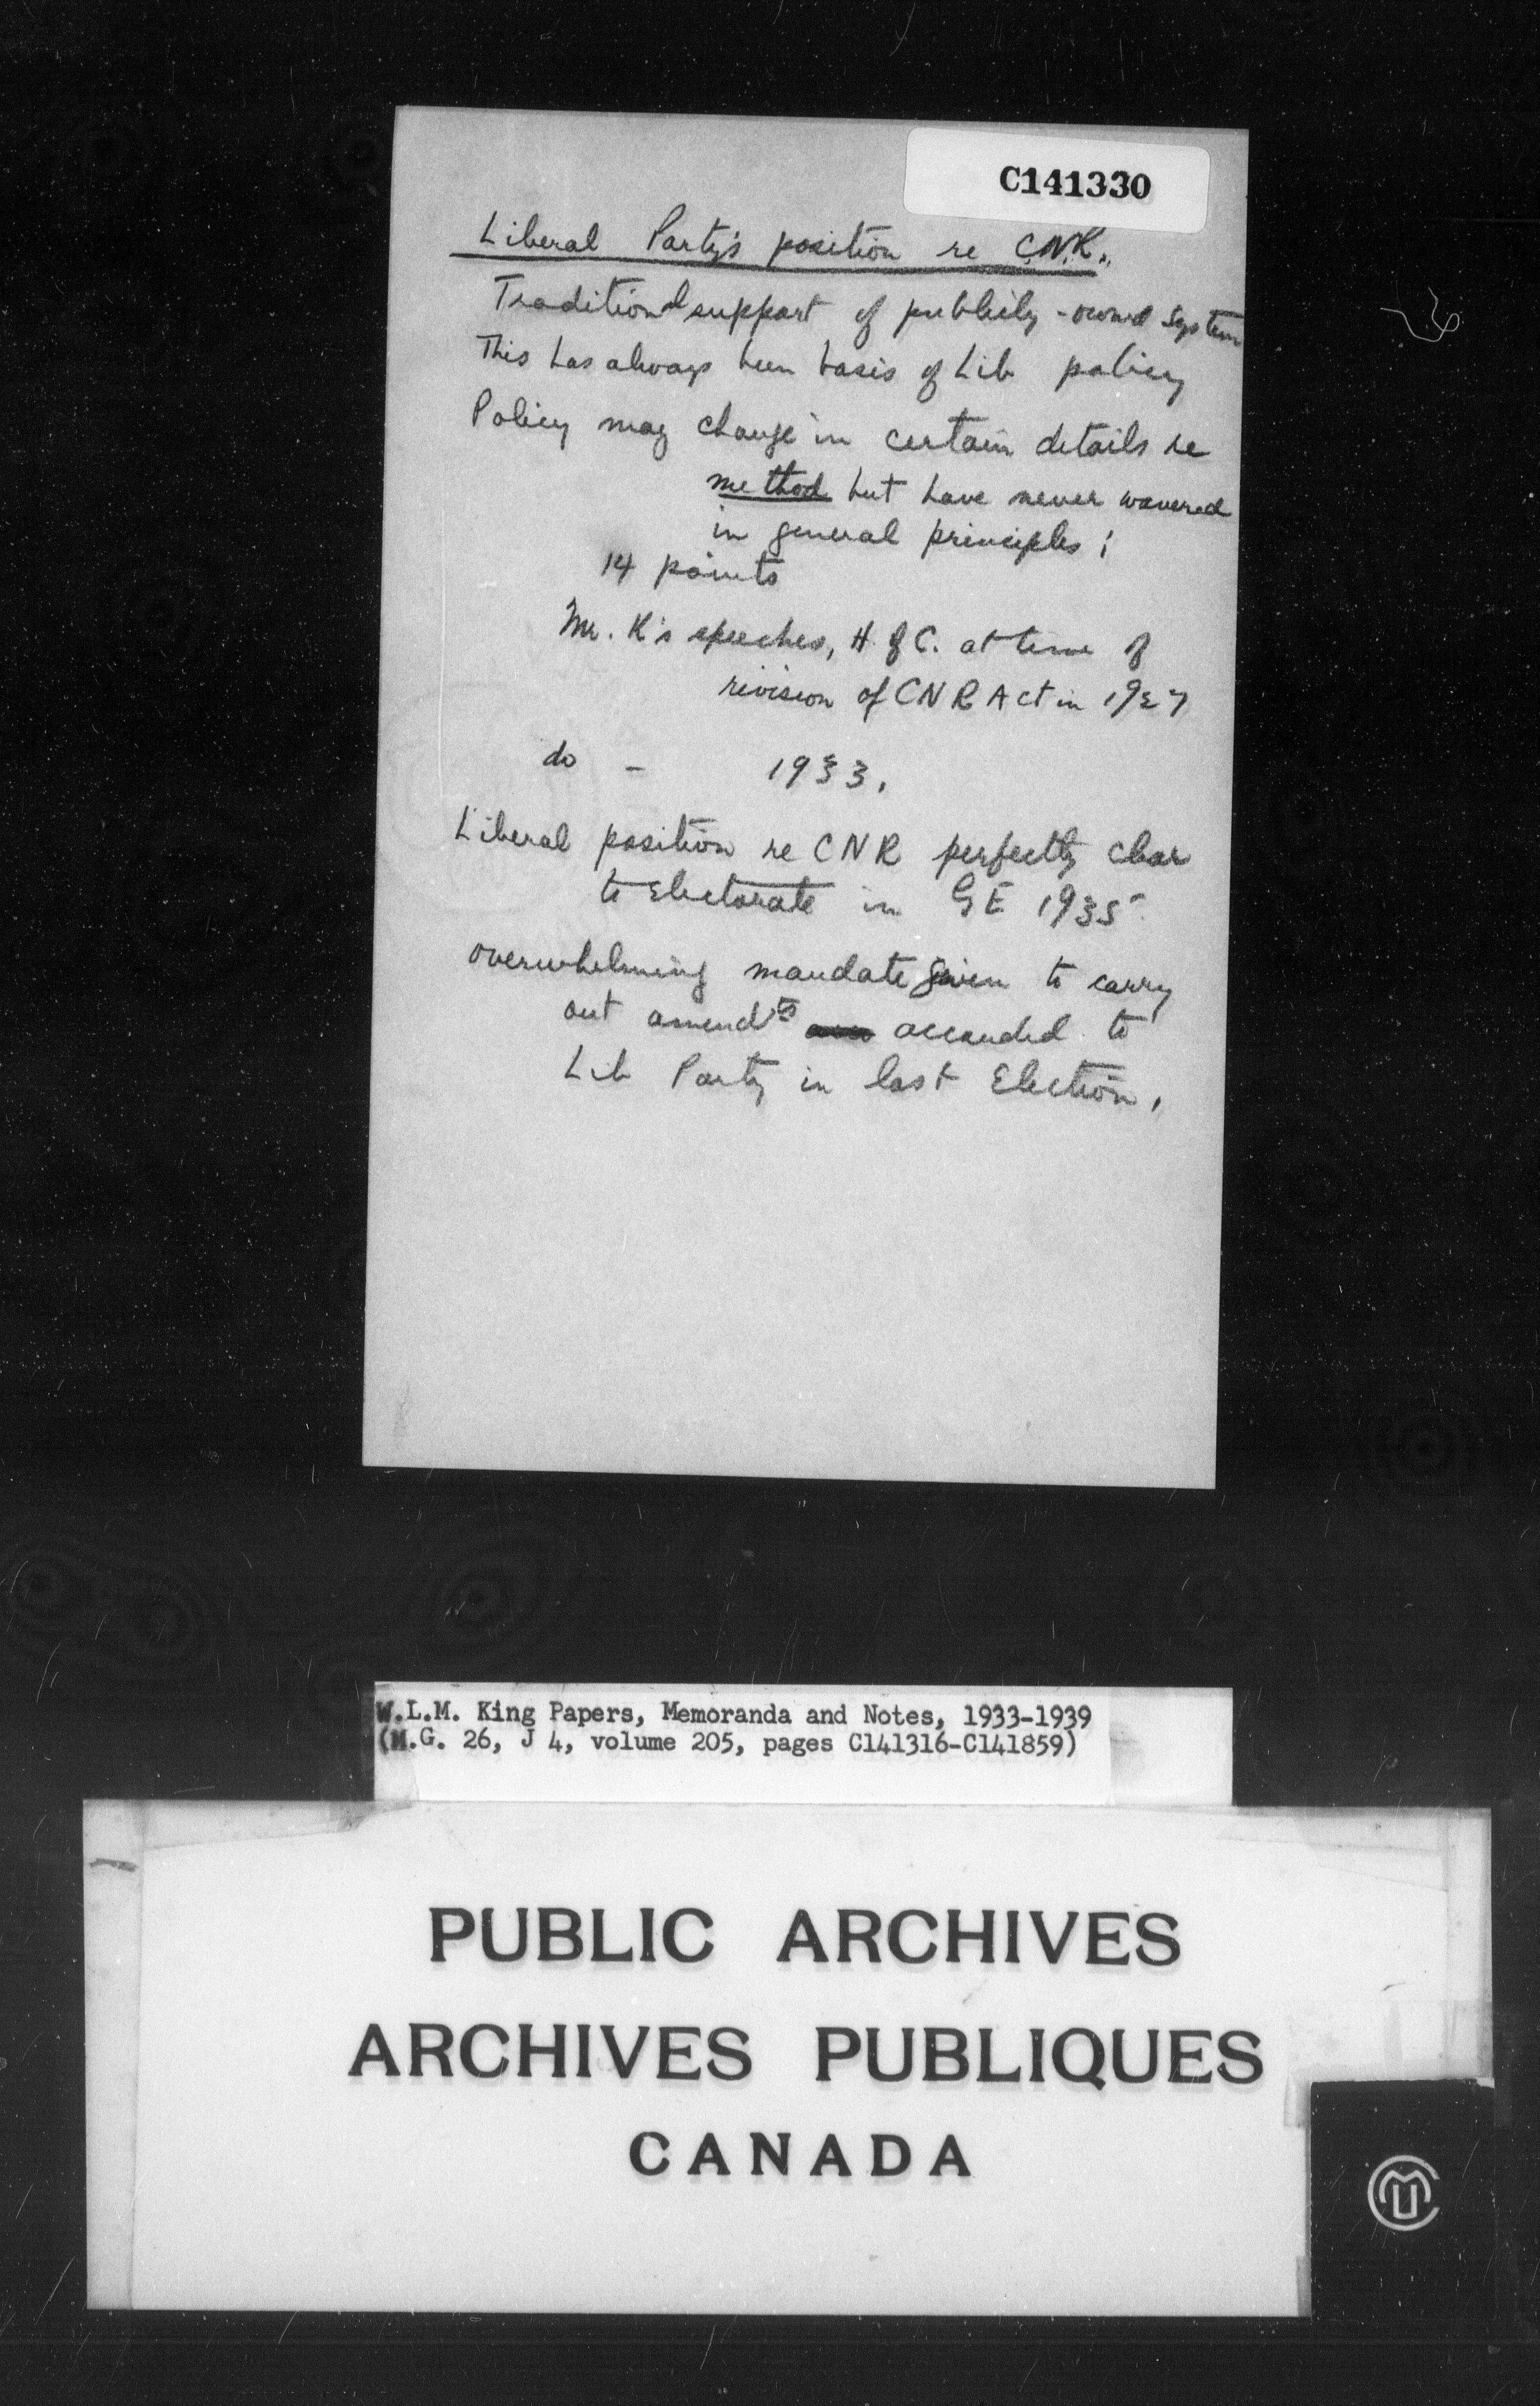 C141330
Liberal Party's position re C.N.R.
Traditional support of publicly-owned system
This has always been basis of Lib policy
Policy may change in certain details re
method but have never wavered
in general principles;
14 points
Mr. K's speeches, H of C. at time of
revision of CNR Act in 1927
do - 1933.
Liberal position re CNR perfectly clear
to Electorate in GE 1935
overwhelming mandate given to carry
out amendts accorded to
Lib Party in last Election.
W.L.M. King Papers, Memoranda and Notes, 1933-1939
(M.G. 26, J 4, volume 205, pages C141316-C141859)
PUBLIC ARCHIVES
ARCHIVES PUBLIQUES
CANADA